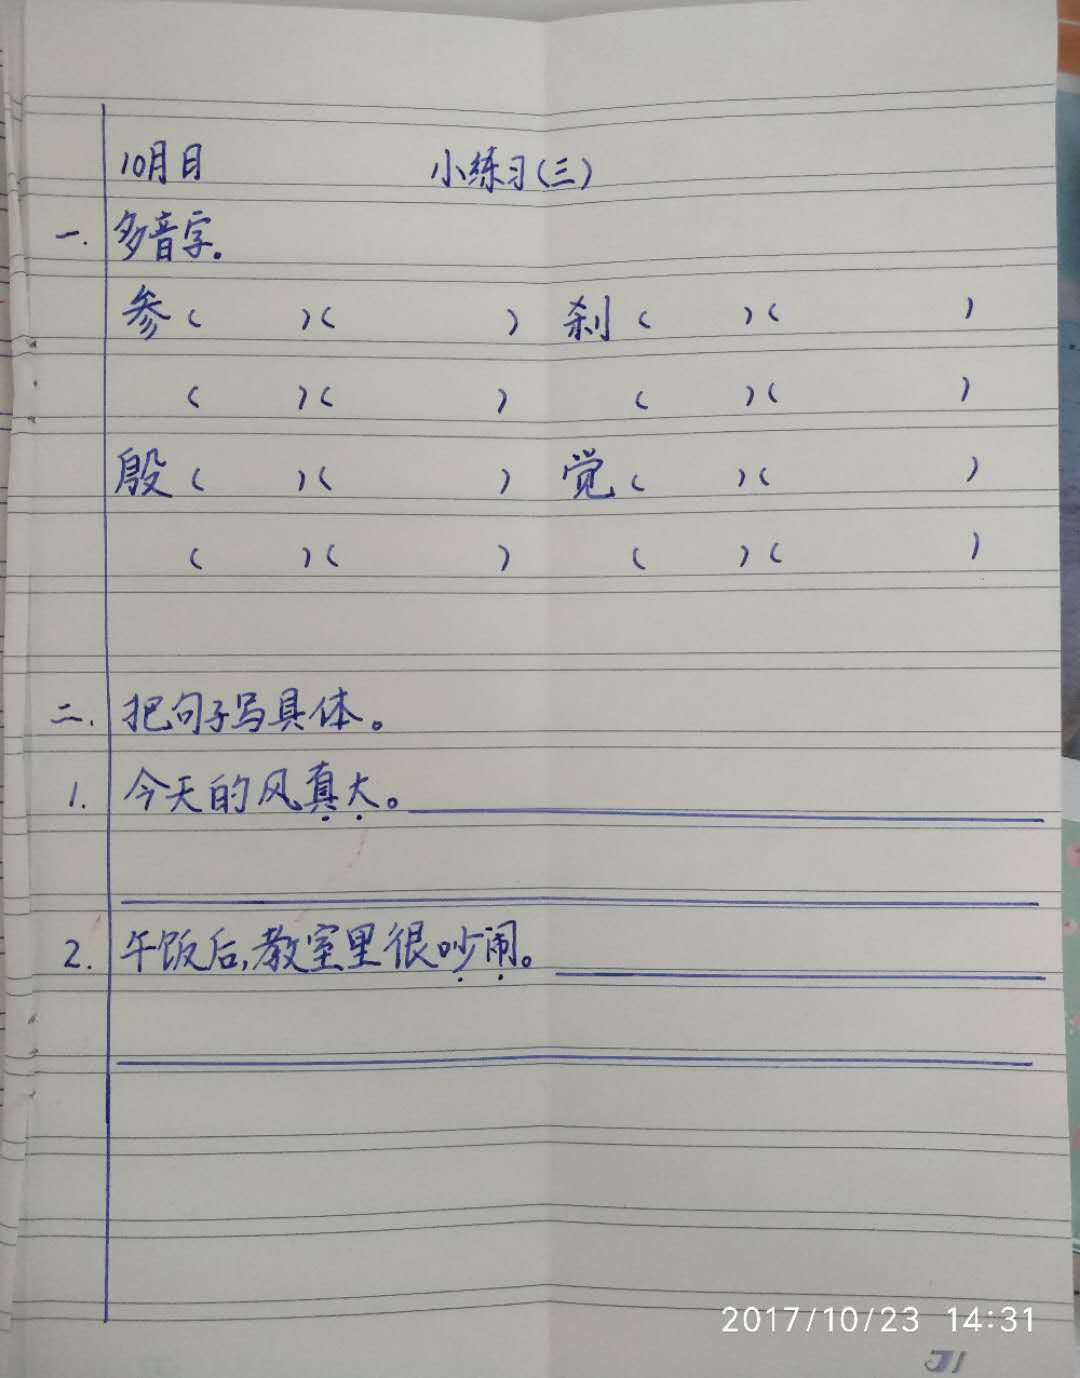 10月日 小练习(三)
一. 多音字.
参( )( ) 刹( )( )
( )( ) ( )( )
殷( )( ) 觉( )( )
( )( ) ( )( )
二. 把句子写具体。
1. 今天的风真大。
2. 午饭后,教室里很吵闹。
2017/10/23 14:31